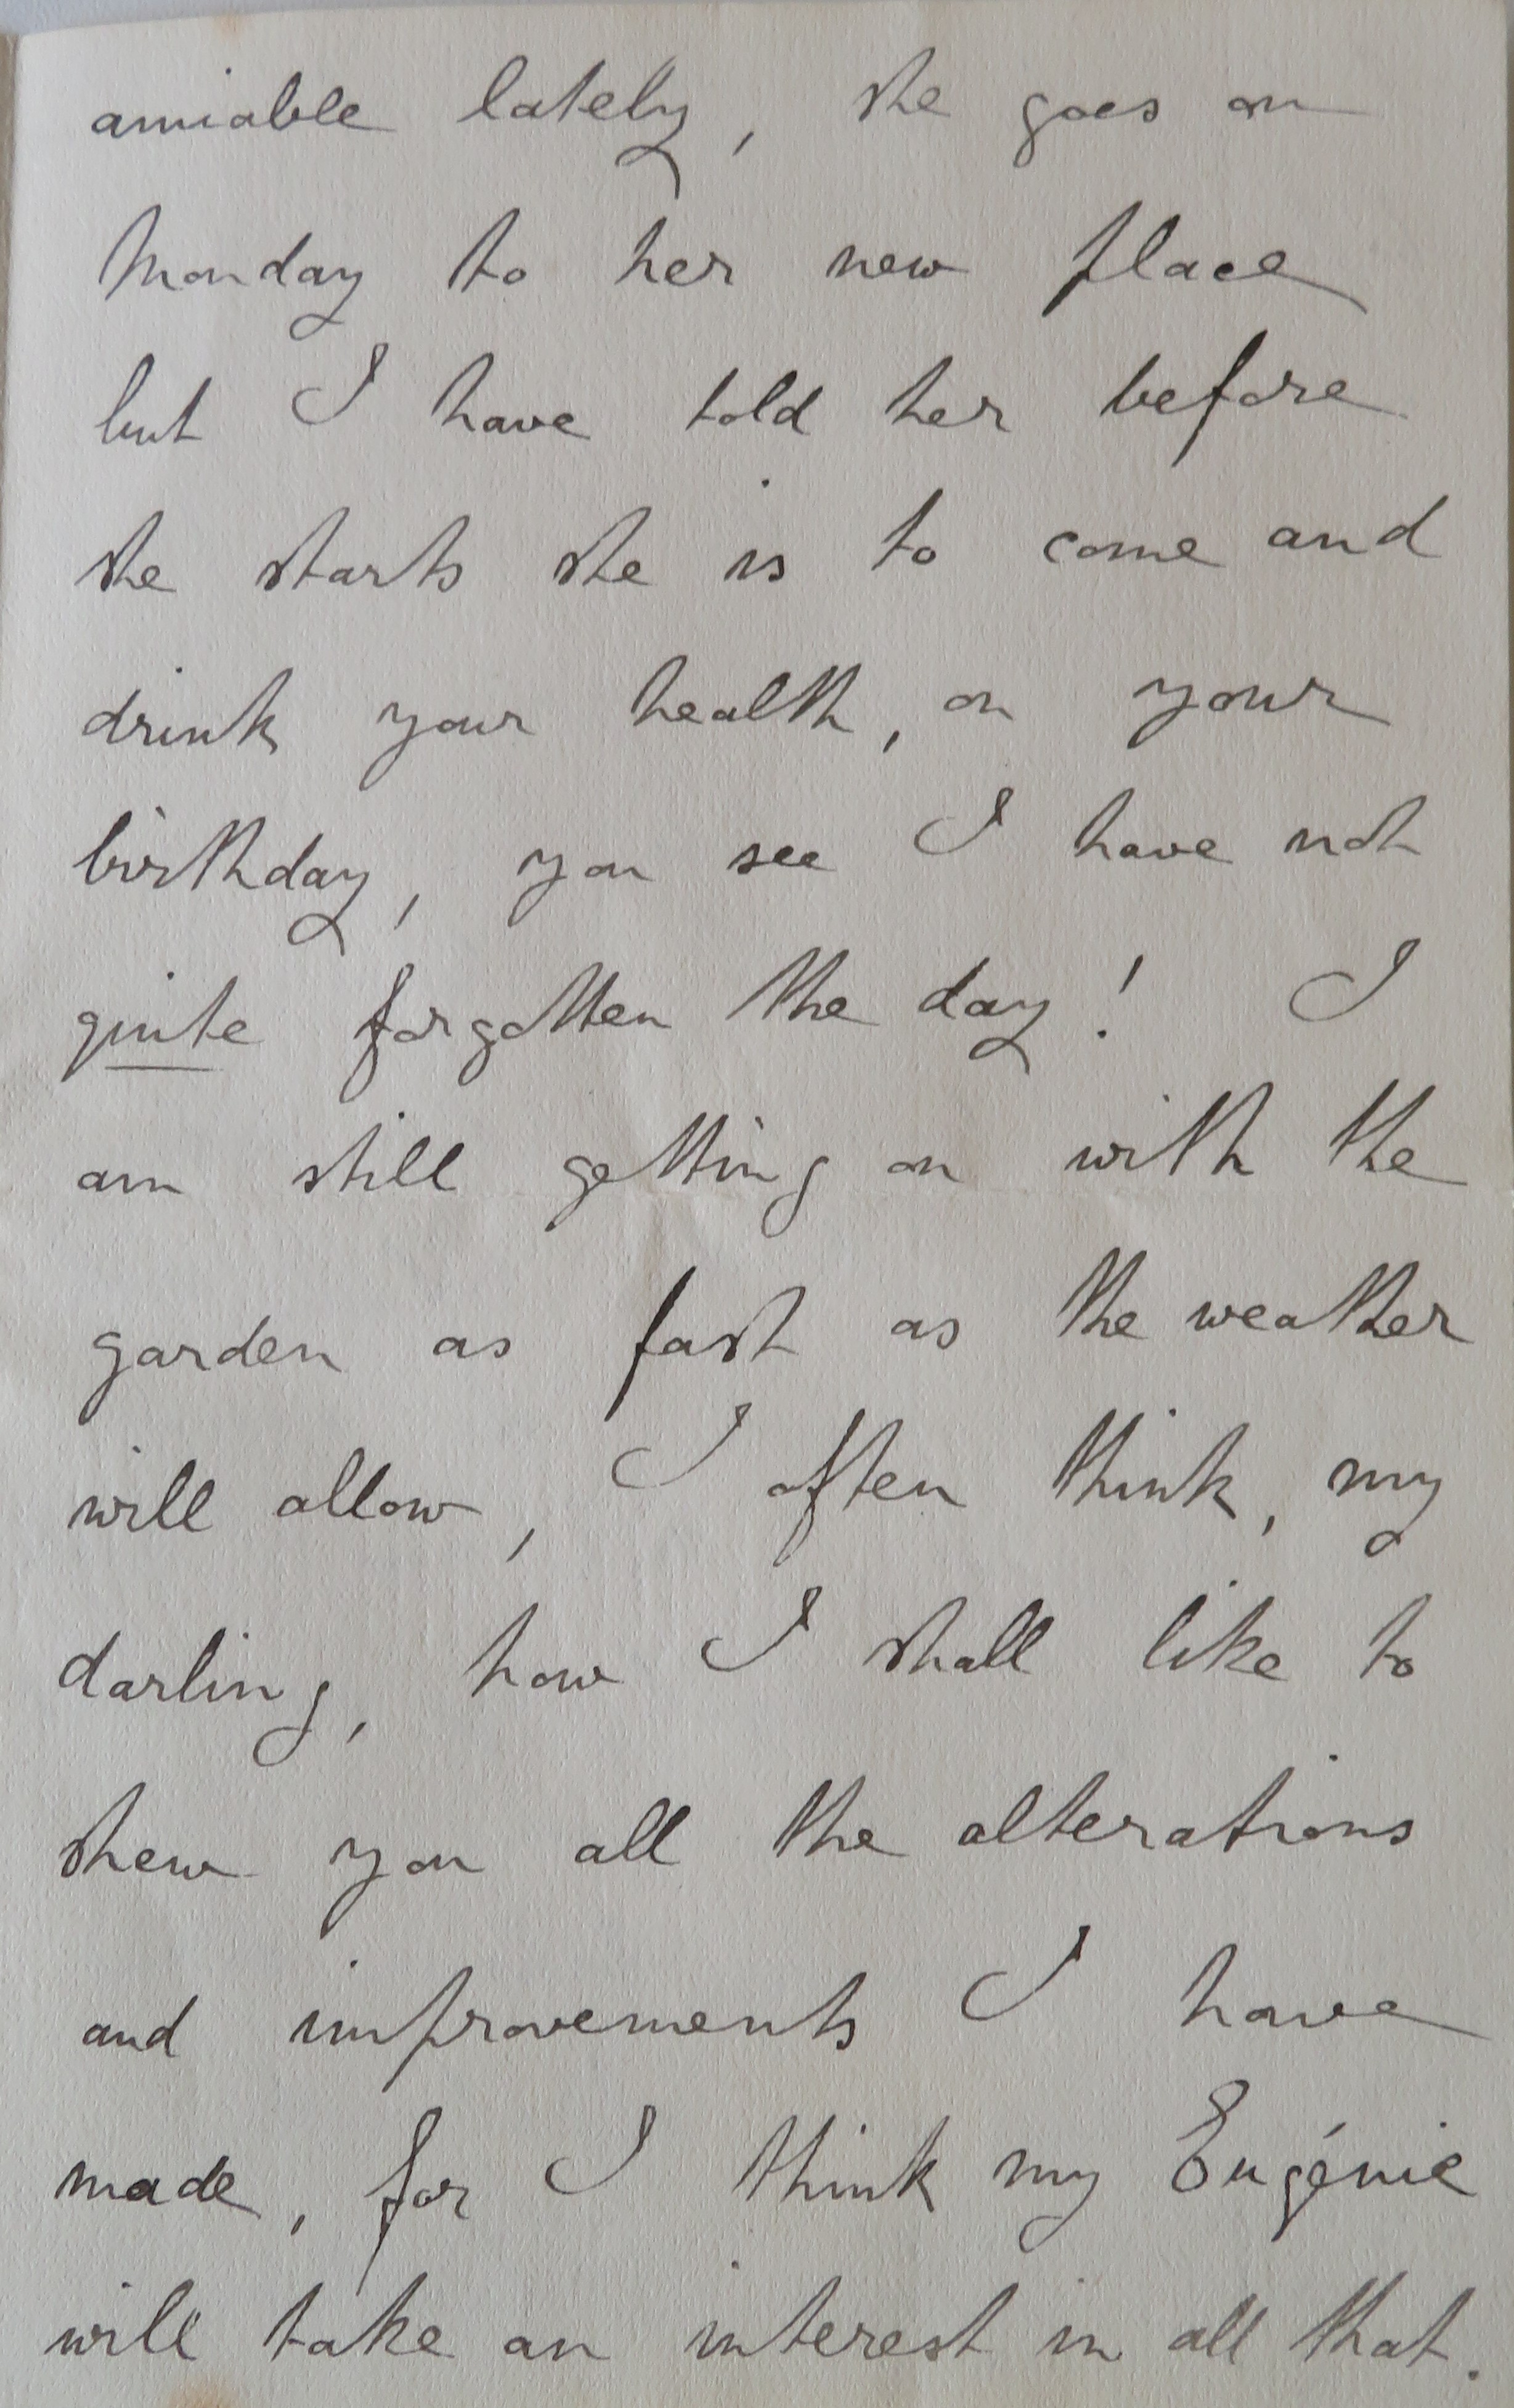 amiable lately, she goes on
Monday to her new place
but I have told her before
she starts she is to come and
drink your health, on your
birthday, you see I have not
quite forgotten the day! I
am still getting on with the
garden as fast as the weather
will allow, I often think, my
darling, how I shall like to
shew you all the alterations
and improvements I have
made, for I think my Eugénie
will take an interest in all that.